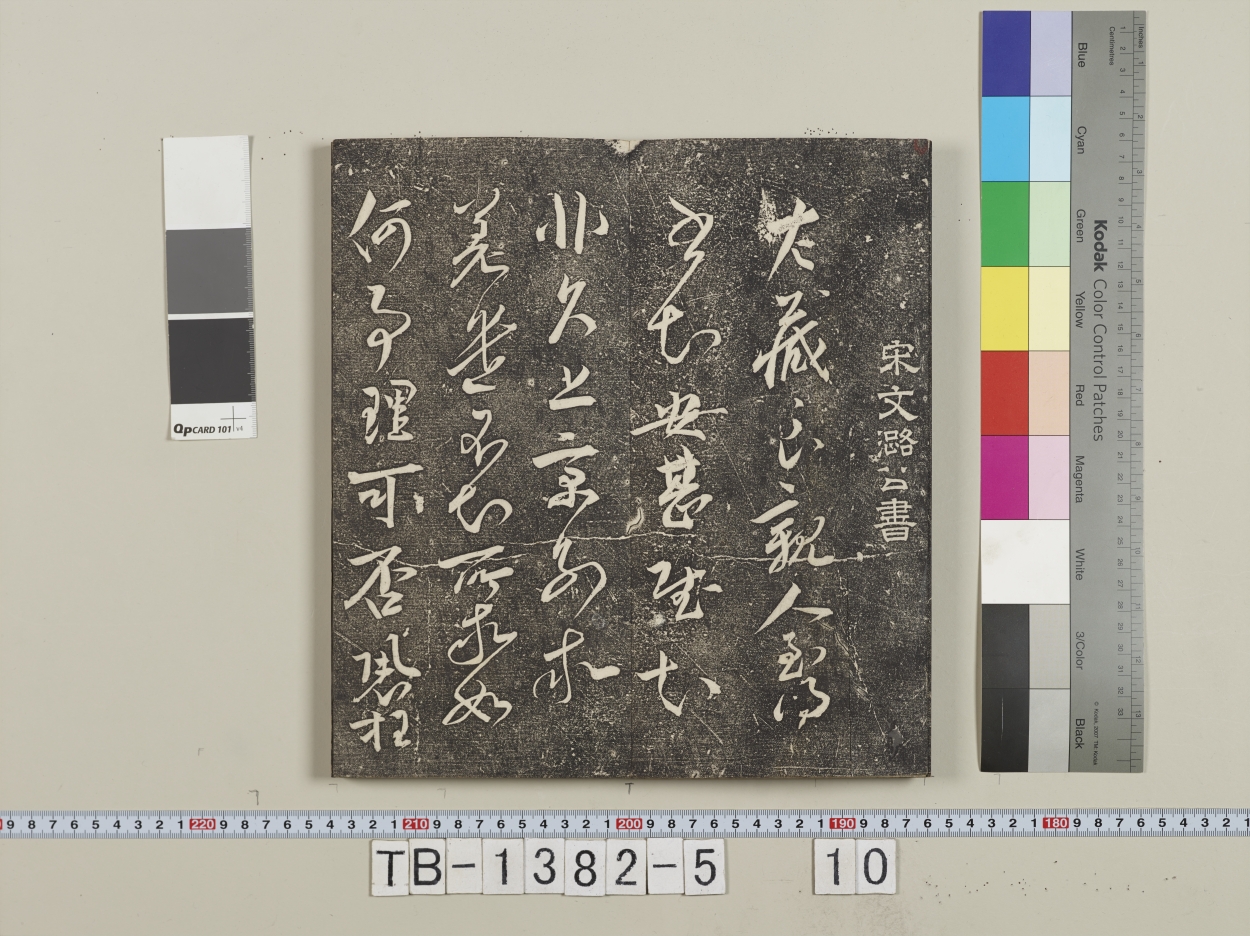 宋文潞公書
大藏 親人至得
書知安甚慰知
非久上京別求
差遣不知所求如
何事理可否恐枉
QpCARD 101 v4
Kodak Color Control Patches
Blue
Cyan
Green
Yellow
Red
Magenta
White
3/Color
Black
Inches
Centimetres
© Kodak, 2007 TM: Kodak
9 8 7 6 5 4 3 2 1 220 9 8 7 6 5 4 3 2 1 210 9 8 7 6 5 4 3 2 1 200 9 8 7 6 5 4 3 2 1 190 9 8 7 6 5 4 3 2 1 180 9 8 7 6 5 4 3 2 1
TB-1382-5 10